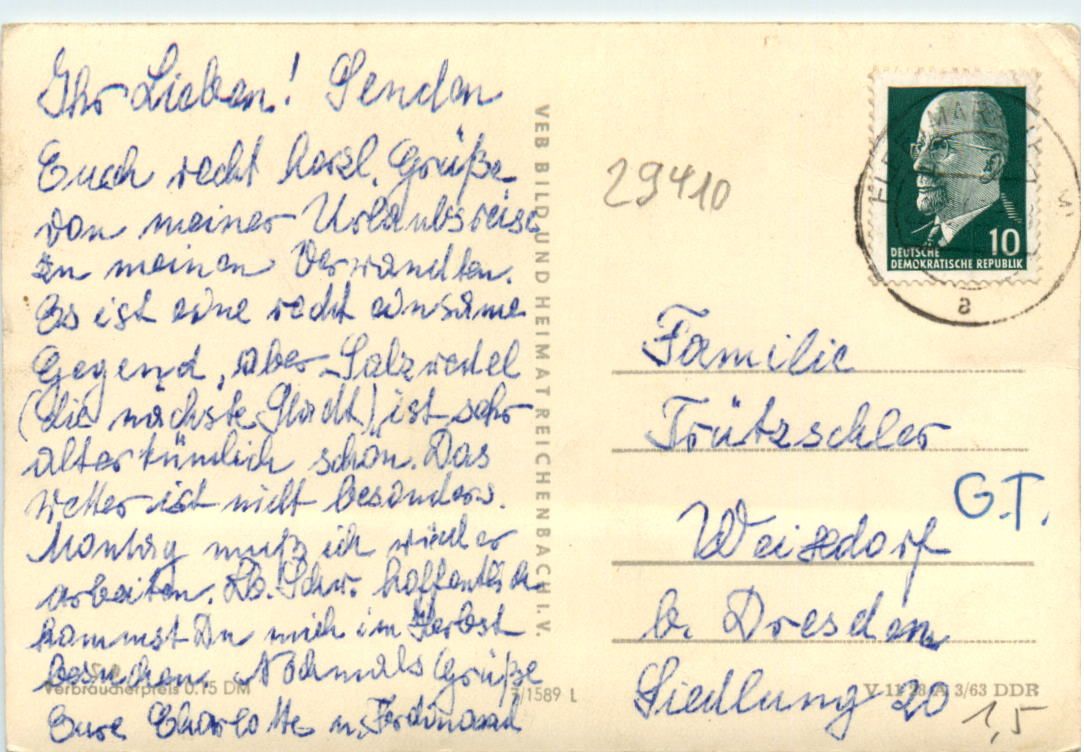 Ihr Lieben! Senden
Euch recht herzl. Grüße
von meiner Urlaubsreise
zu meinen Verwandten.
Es ist eine recht einsame
Gegend, aber Salzwedel
(die nächste Stadt) ist sehr
altertümlich schön. Das
Wetter ist nicht besonders.
Montag muß ich wieder
arbeiten. Lb. Schw. hoffentlich
kommst Du mich im Herbst
besuchen. Nochmals Grüße
Eure Charlotte u. Ferdinand
Verbraucherpreis 0.15 DM
1589 L
VEB BILD UND HEIMAT REICHENBACH I. V.
29410
DEUTSCHE
DEMOKRATISCHE REPUBLIK
10
a
Familie
Trützschler
G.T.
Weixdorf
b. Dresden
Siedlung 20
V 11 28 A 3/63 DDR
1,5